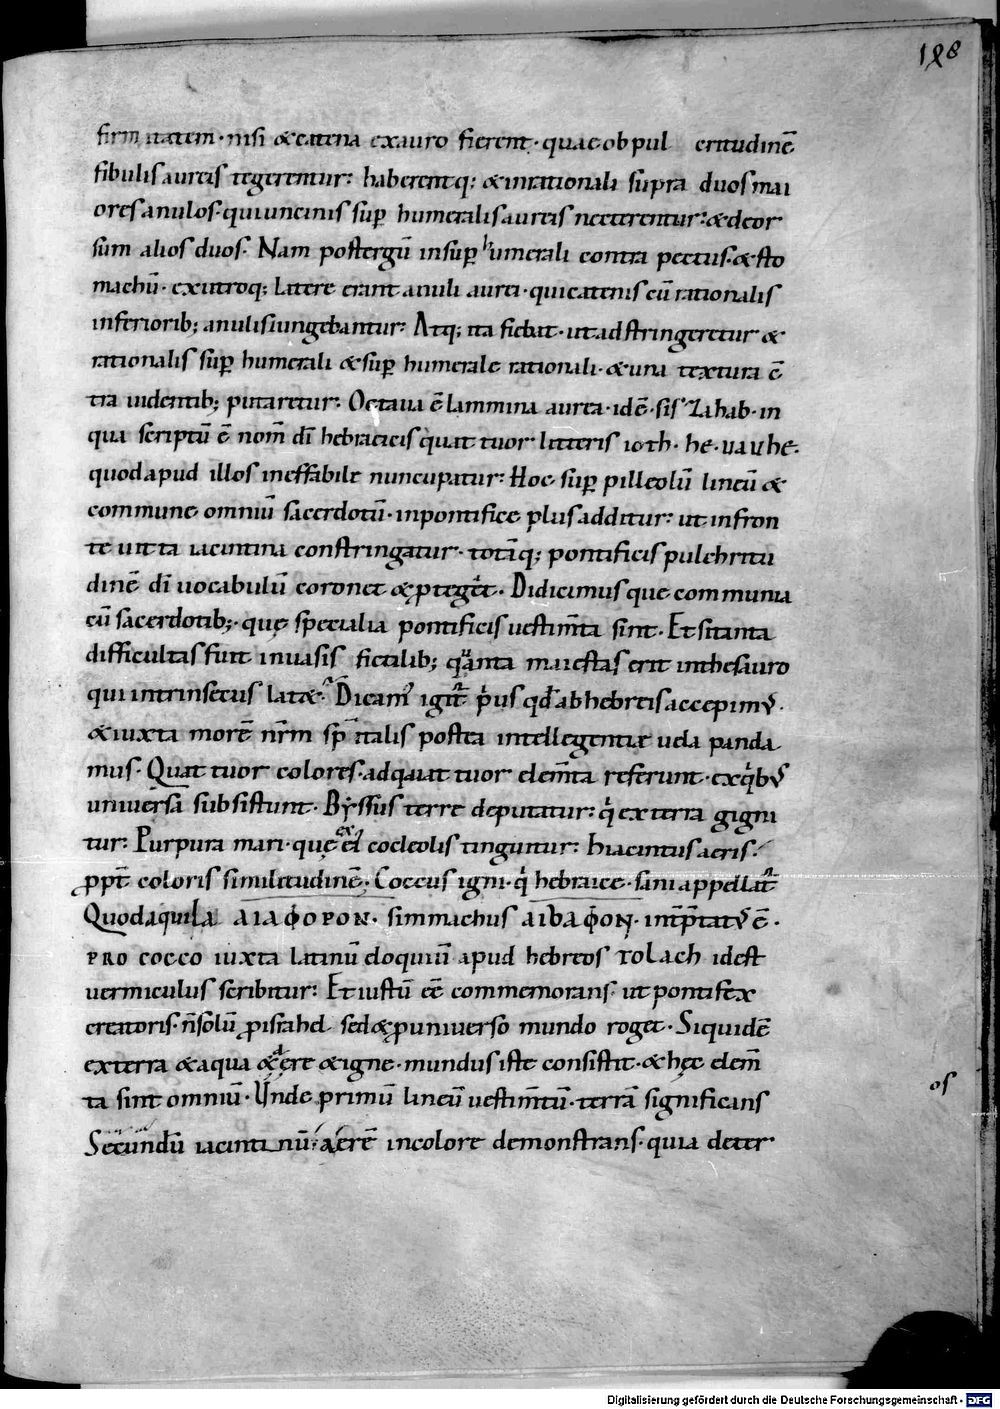 198
firmitatem · nisi & catena ex auro fierent · quae ob pulcritudinē
fibulis aureis tegerentur: haberentq; & in rationali supra duos mai
ores anulos · qui uncinis sup̄ humeralis aureis necterentur: & deor
sum alios duos · Nam post ergū in sup̄ humerali contra pectus · & sto
machū · ex utroq; latere erant anuli aurei · qui catenis cū rationalis
inferiorib; anulis iungebantur: Atq; ita fiebat · ut adstringeretur &
rationalis sup̄ humerali & sup̄ humerale rationali · & una textura ē
tra uidentib; putaretur: Octaua ē lammina aurea · idē · sis zahab · in
qua scriptū ē nom̄ dī hebraicis quattuor litteris ioth · he · uau he ·
quod apud illos ineffabile nuncupatur: Hoc sup̄ pilleolū lineū &
commune omniū sacerdotū · in pontifice plus additur: ut in fron
te uitta iacintina constringatur · totāq; pontificis pulchritu
dinē dī uocabulū coronet & p̄teget · Didicimus que communia
cū sacerdotib; · quę specialia pontificis uestim̄ta sint · Et si tanta
difficultas fuit in uasis fictilib; quanta maiestas erit in thesauro
qui intrinsecus latæ · Dicam' igit̄ p̄us qd̄ ab hebreis accepim' ·
& iuxta morē nr̄m sp̄italis postea intellegentiæ uela panda
mus · Quattuor colores · ad quattuor elem̄ta referunt · ex qb'
uniuersa subsistunt · Byssus terre deputatur: q̇ ex terra gigni
tur: Purpura mari · quę ex ei' cocleolis tinguitur: hiacintus aeris ·
ꝓpt̄ coloris similitudinē; Coccus igni · q̇ hebraice · sani appellat̄
Quod aquila ΑΙΑΦΟΡΟΝ · simmachus ΑΙΒΑΦΟΝ · int̄p̄tat' ē ·
PRO COCCO iuxta latinū eloquiū apud hebreos tolach idest
uermiculus scribitur: Et iustū ēē commemorans · ut pontifex
creatoris · n̄ solū ꝓ israhel sed & ꝓ uniuerso mundo roget · Siquidē
ex terra & aqua & aere & igne · mundus iste consistit · & hęc elem̄
ta sint omniū · Unde primū lineū uestim̄tū · terrā significans
os
Secundū iacintinū: aerē in colore demonstrans · quia de ter
Digitalisierung gefördert durch die Deutsche Forschungsgemeinschaft - DFG